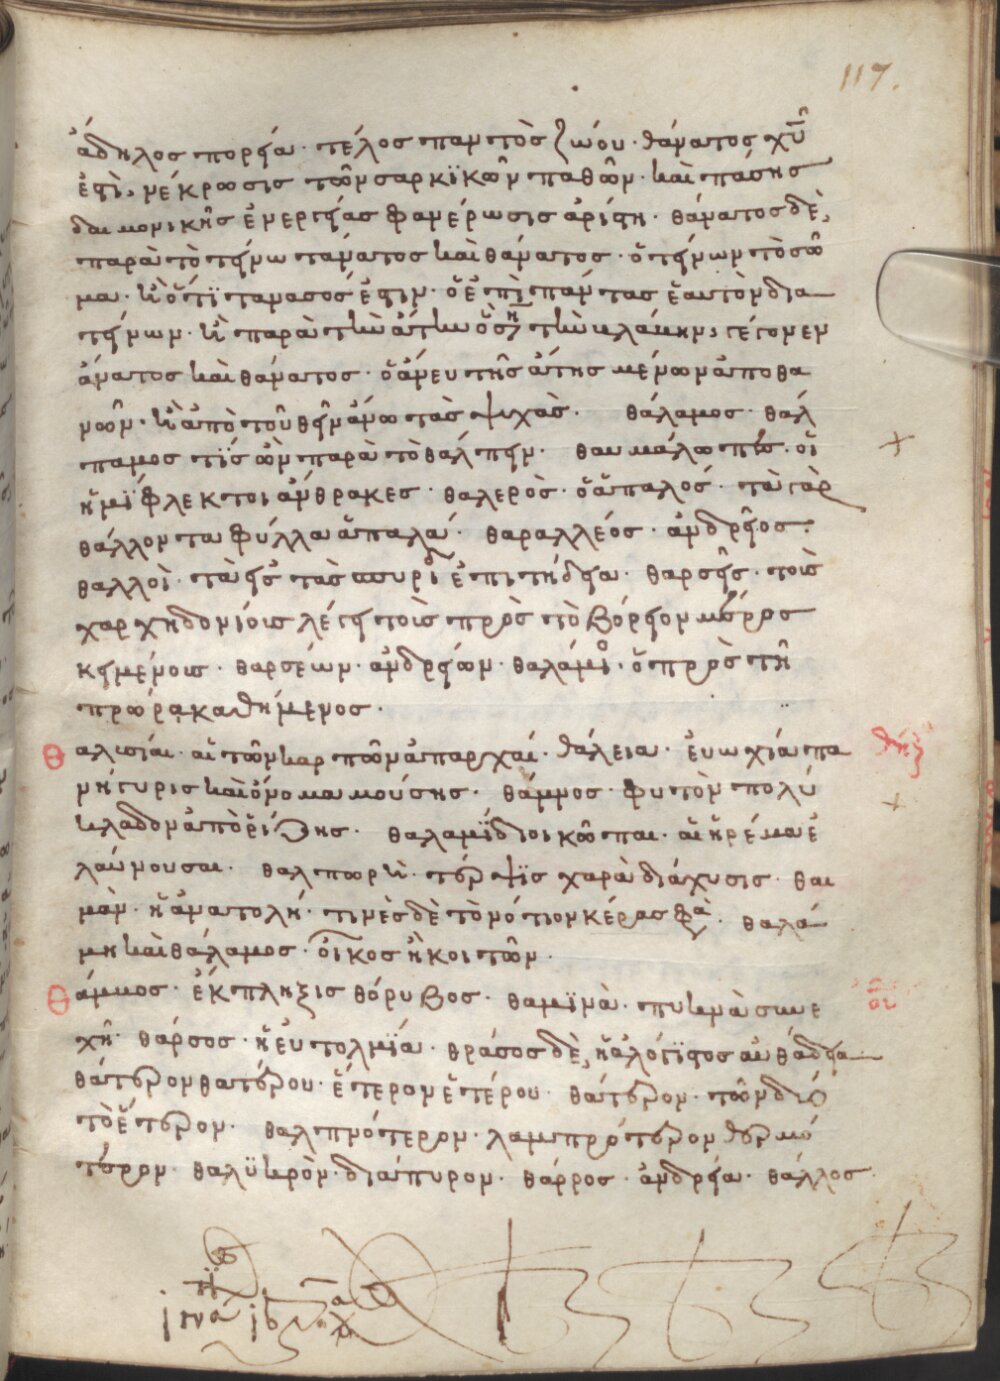 117.
ἄδηλος πορεία · τέλος παντὸς ζώου · θάνατος χῦ
ἐστὶ, νέκρωσις τῶν σαρκϊκῶν παθῶν · καὶ πάσης
δαιμονικῆς ἐνεργείας φανέρωσις ἀρίστη · θάνατος δὲ,
παρὰ τὸ τείνω τάνατος καὶ θάνατος · ὁ τείνων τὸ σῶ
μα · ἐστιν · ὁ ἐπὶ πάντας ἑαυτὸν δια
τείνων · παρὰ τὴν ἄτην
ἄνατος καὶ θάνατος · ὁ ἄνευ τῆς ἄτης μένων ἀποθα
νῶν · ἀπὸ τοῦ θεῖν ἄνω τὰς ψυχὰς · θάλαμος · θάλ
παμος τϊς ὢν παρὰ τὸ θάλπειν · θαυμάλωπες · οἱ
ἡμΐφλεκτοι ἄνθρακες · θαλερὸς · ὁ ἁπαλός · τὰ γὰρ
θάλλοντα φύλλα ἁπαλά · θαρραλλέος · ἀνδρεῖος :
θαλλοὶ · τὰ εἰς τὰς ἐπιτήδεια · θαρσεῖς · τοῖς
χαρχηδονίοις λέγει τοῖς πρὸς τὸ βόρειον μέρος
κειμένοις · θαρσέων · ἀνδρείων · θαλάμιος · ὁ πρὸς τῇ
πρώρᾳ καθήμενος ·
Θαλισίαι · αἱ τῶν καρπῶν ἀπαρχαί · θάλεια · ἐυωχία πα
νήγυρις καὶ ὄνομα μούσης · θάμνος · φυτὸν πολύ
κλαδον ἀπὸ ῥίζης · θαλαμΐδιοι κῶπαι · αἱ ἠρέμα ἐ
λαύνουσαι · θαλπωρὴ · τέρψϊς χαρὰ διάχυσις · θαι
μὰν · ἡ ἀνατολή · τινὲς δὲ τὸ νότιον κέρας φα · θαλά
μη καὶ θάλαμος · οἶκος ἢ κοιτών ·
Θάμνος · ἔκπληξις θόρυβος · θαμϊνὰ · πυκνὰ συνε
χῆ · θάρσος · ἡ ἐυτολμΐα · θράσος δὲ, ἡ ἀλόγϊστος αὐθάδεια
θάτερον θατέρου · ἕτερον ἑτέρου · θάτερον · τῶν δύο
τὸ ἕτερον · θαλπνότερον · λαμπρότερον θερμό
τερον · θαλϋκρὸν · διάπυρον · θάρρος · ἀνδρεία · θάλλος